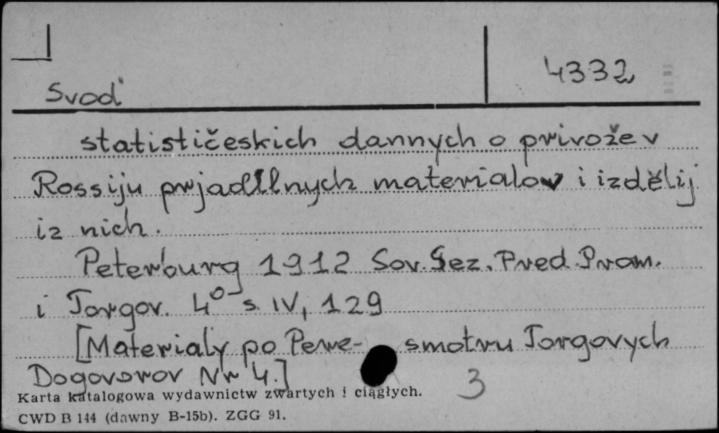 4332
Svod
statističeskich dannych o privože v
Rossiju prjadilnych materialov i izdělij
iz nich.
Peterburg 1912 Sov. Sez. Pred. Prom.
i Torgov. 4° s IV, 129
[Materialy po Pere- smotru Torgovych
Dogovorov Nr 4.]
3
Karta katalogowa wydawnictw zwartych i ciągłych.
CWD B 144 (dawny B-15b). ZGG 91.